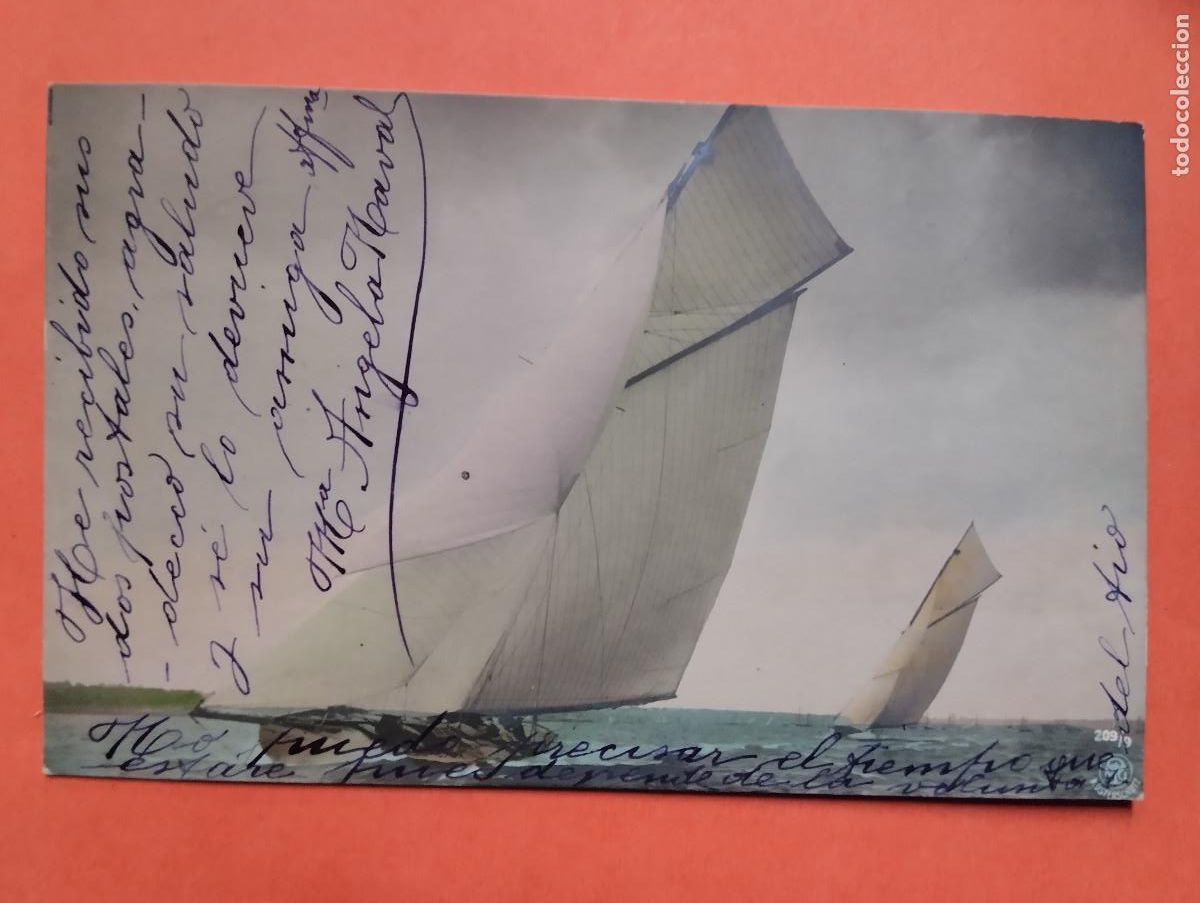 He recibido sus
dos postales, agra-
-dezco su saludo
y se lo devuelve
su amiga affma
Mª Angela Naval
No puedo precisar el tiempo que
estare pues depende de la voluntad
del tio
209/9
todocoleccion